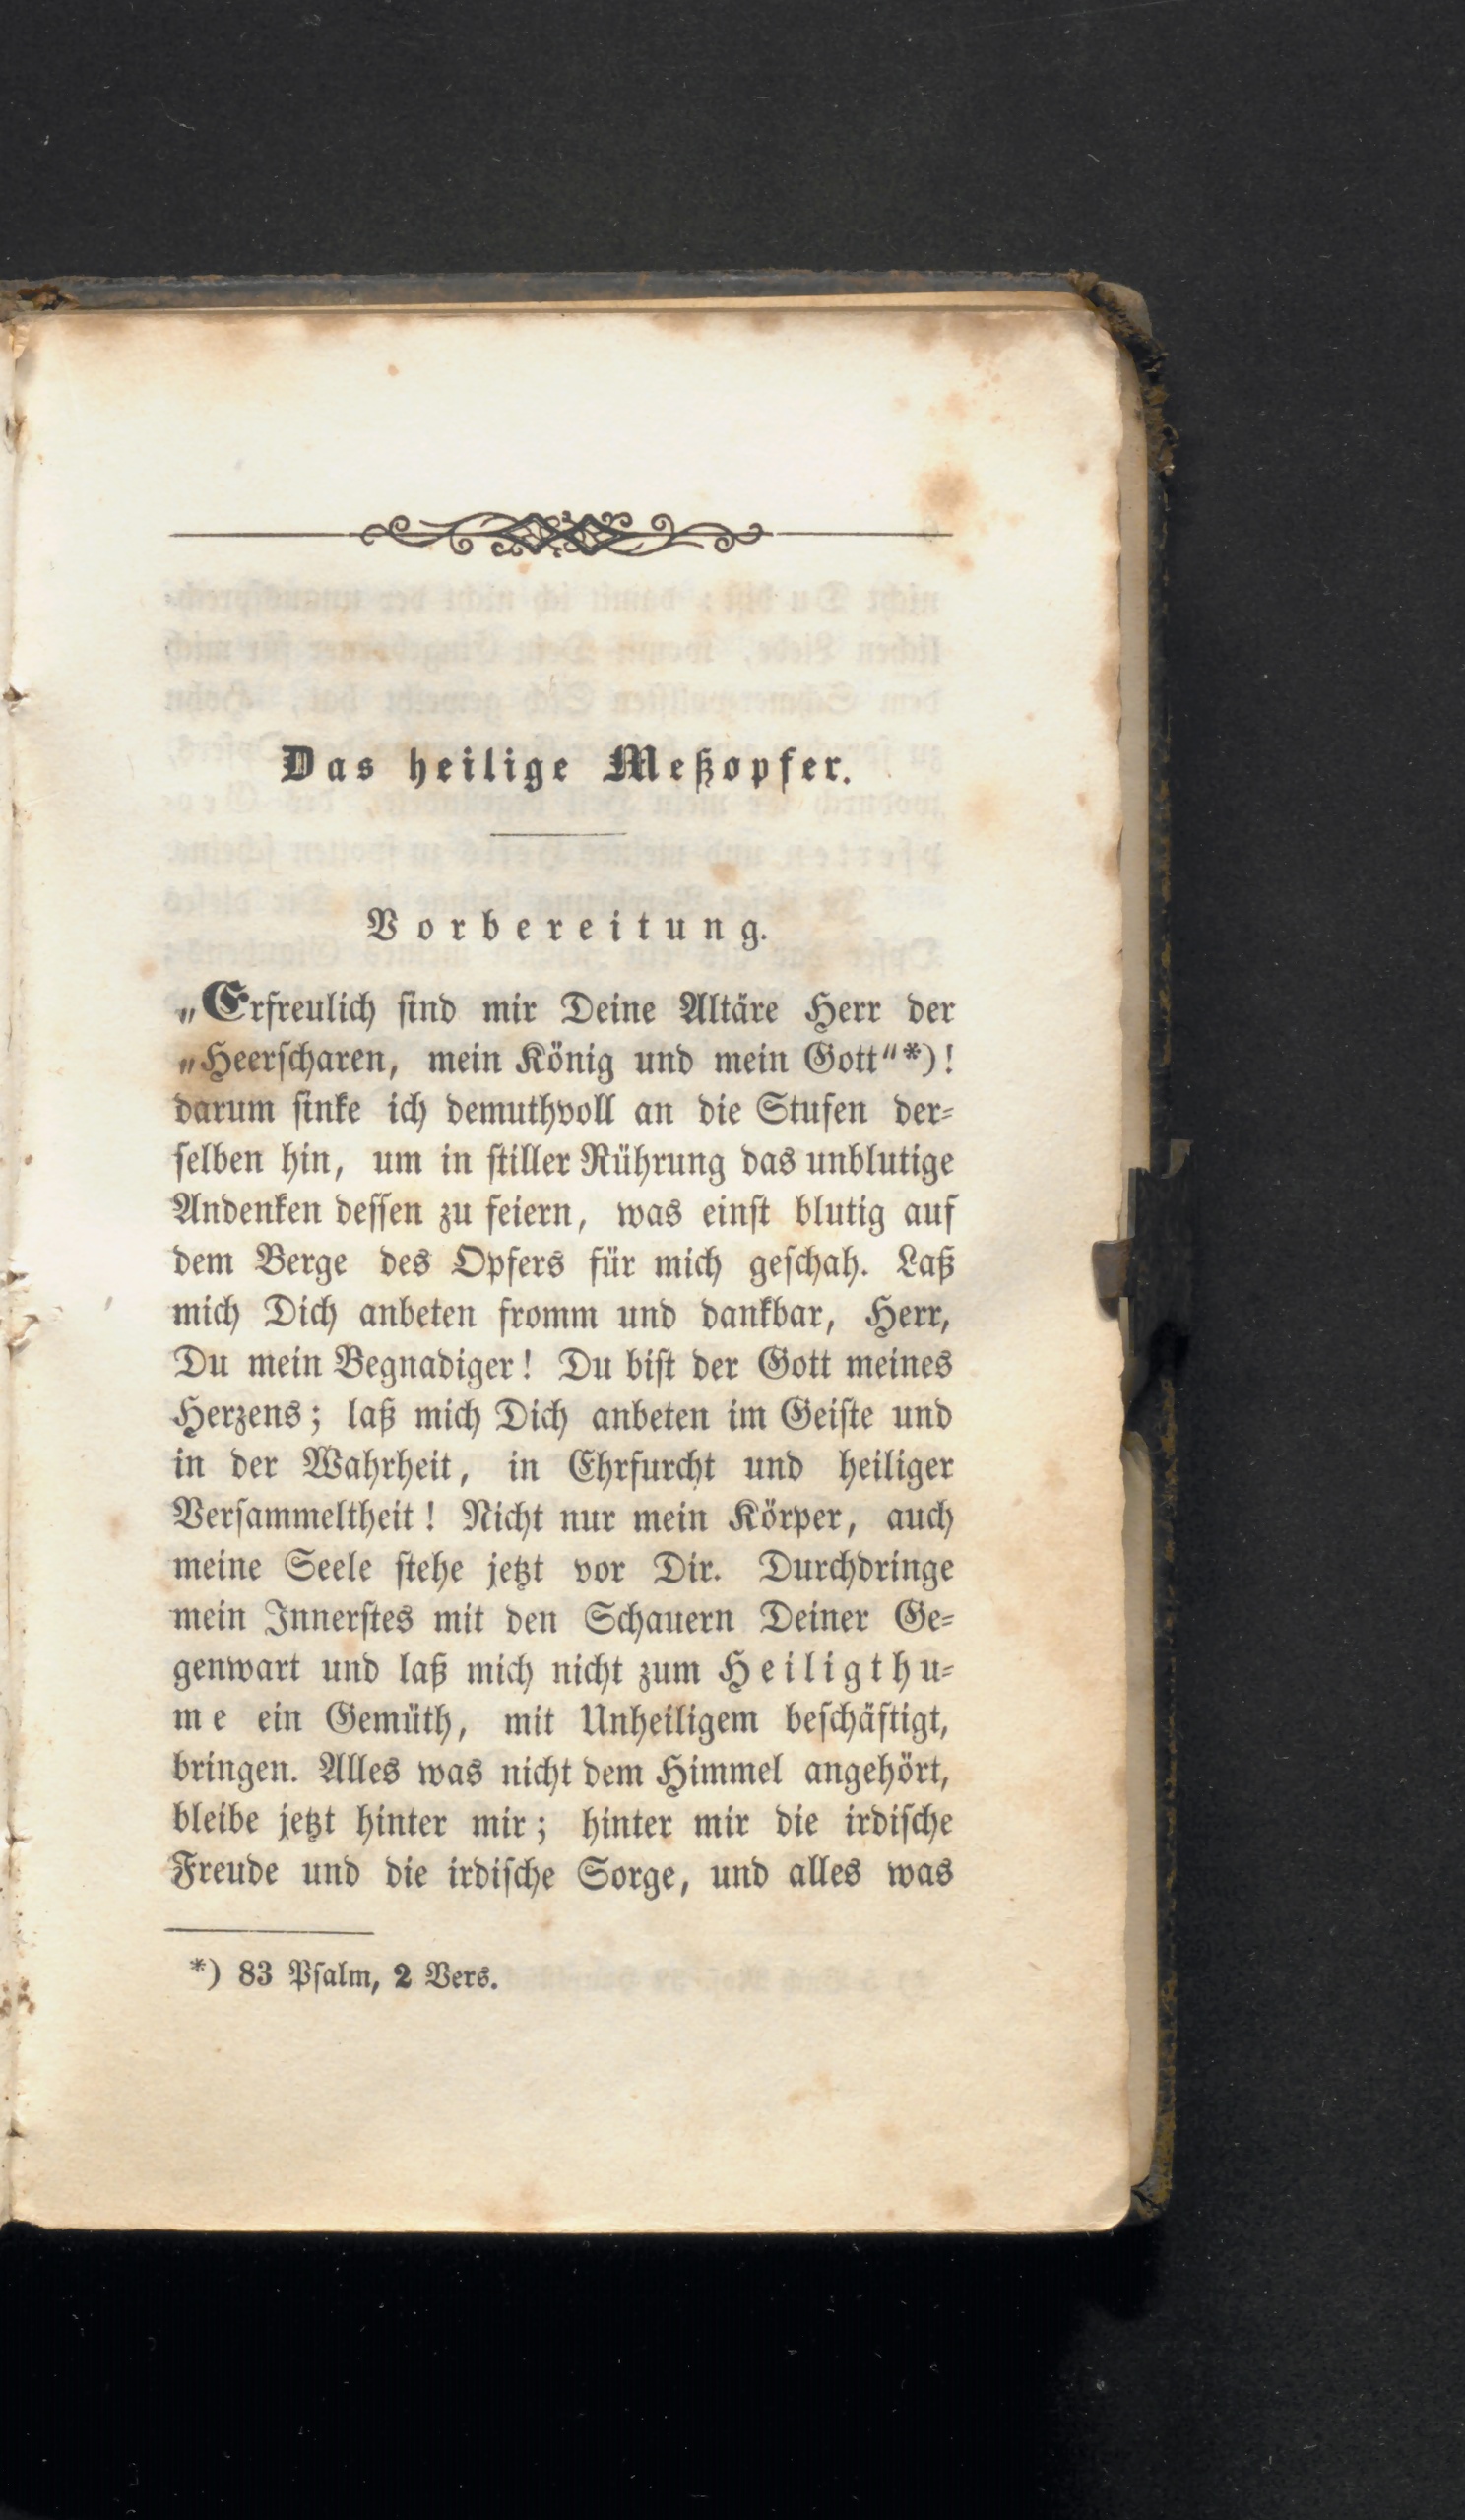 Das heilige Meßopfer.
Vorbereitung.
„Erfreulich sind mir Deine Altäre Herr der
„Heerscharen, mein König und mein Gott“*)!
darum sinke ich demuthvoll an die Stufen der-
selben hin, um in stiller Rührung das unblutige
Andenken dessen zu feiern, was einst blutig auf
dem Berge des Opfers für mich geschah. Laß
mich Dich anbeten fromm und dankbar, Herr,
Du mein Begnadiger! Du bist der Gott meines
Herzens; laß mich Dich anbeten im Geiste und
in der Wahrheit, in Ehrfurcht und heiliger
Versammeltheit! Nicht nur mein Körper, auch
meine Seele stehe jetzt vor Dir. Durchdringe
mein Innerstes mit den Schauern Deiner Ge-
genwart und laß mich nicht zum Heiligthu-
me ein Gemüth, mit Unheiligem beschäftigt,
bringen. Alles was nicht dem Himmel angehört,
bleibe jetzt hinter mir; hinter mir die irdische
Freude und die irdische Sorge, und alles was
*) 83 Psalm, 2 Vers.